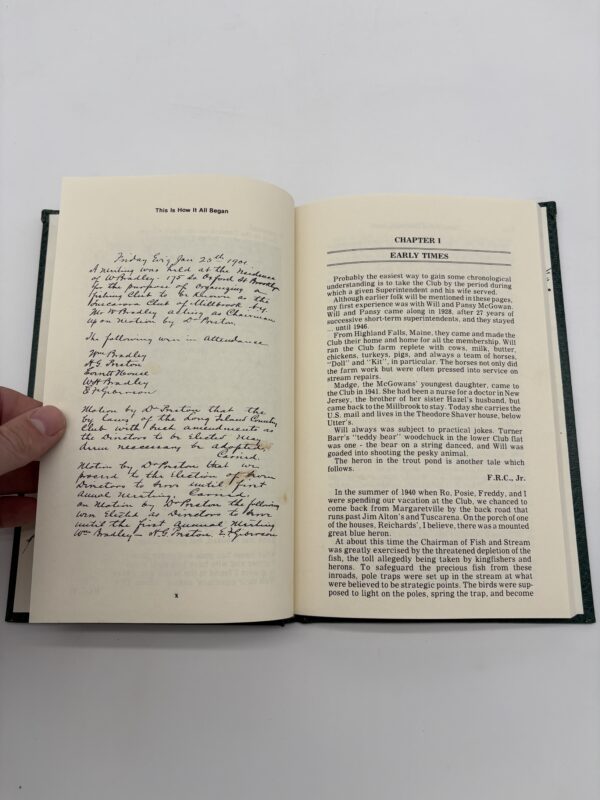 This Is How It All Began
Friday Ev'g Jan 25th 1901
A meeting was held at the residence
of W Bradley - 175 So Oxford St Brooklyn
for the purpose of organizing a
Fishing Club to be known as the
Tuscarora Club of Millbrook N.Y.
Mr W Bradley acting as Chairman
upon motion by Dr Preston.
The following were in attendance
Wm Bradley
H. G. Preston
W H Bradley
Motion by Dr Preston that the
by laws of the Long Island Country
Club with such amendments as
the Directors to be Elected may
deem necessary be adopted.
Carried.
Motion by Dr Preston that we
proceed to the election of
Directors to serve until first
annual meeting. Carried.
on motion by Dr Preston the following
were Elected as Directors to serve
until the first annual meeting
Wm Bradley - H. G. Preston
x
CHAPTER I
EARLY TIMES
Probably the easiest way to gain some chronological
understanding is to take the Club by the period during
which a given Superintendent and his wife served.
Although earlier folk will be mentioned in these pages,
my first experience was with Will and Pansy McGowan.
Will and Pansy came along in 1928, after 27 years of
successive short-term superintendents, and they stayed
... until 1946.
From Highland Falls, Maine, they came and made the
Club their home and home for all the membership. Will
ran the Club farm replete with cows, milk, butter,
chickens, turkeys, pigs, and always a team of horses,
"Doll" and "Kit", in particular. The horses not only did
the farm work but were often pressed into service on
stream repairs.
Madge, the McGowans' youngest daughter, came to
the Club in 1941. She had been a nurse for a doctor in New
Jersey, the brother of her sister Hazel's husband, but
came back to the Millbrook to stay. Today she carries the
U.S. mail and lives in the Theodore Shaver house, below
Utter's.
Will always was subject to practical jokes. Turner
Barr's "teddy bear" woodchuck in the lower Club flat
was one - the bear on a string danced, and Will was
goaded into shooting the pesky animal.
The heron in the trout pond is another tale which
follows.
F.R.C., Jr.
In the summer of 1940 when Ro, Posie, Freddy, and I
were spending our vacation at the Club, we chanced to
come back from Margaretville by the back road that
runs past Jim Alton's and Tuscarena. On the porch of one
of the houses, Reichards', I believe, there was a mounted
great blue heron.
At about this time the Chairman of Fish and Stream
was greatly exercised by the threatened depletion of the
fish, the toll allegedly being taken by kingfishers and
herons. To safeguard the precious fish from these
inroads, pole traps were set up in the stream at what
were believed to be strategic points. The birds were sup-
posed to light on the poles, spring the trap, and become